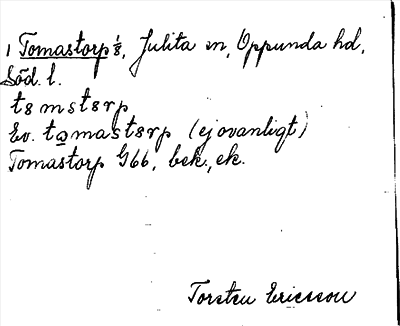 1 Tomastorp 1/8, Julita sn, Oppunda hd,
Söd. l.
t8mst8rp
Ev. tomast8rp (ej ovanligt)
Tomastorp G66, bek., ek.
Torsten Ericsson